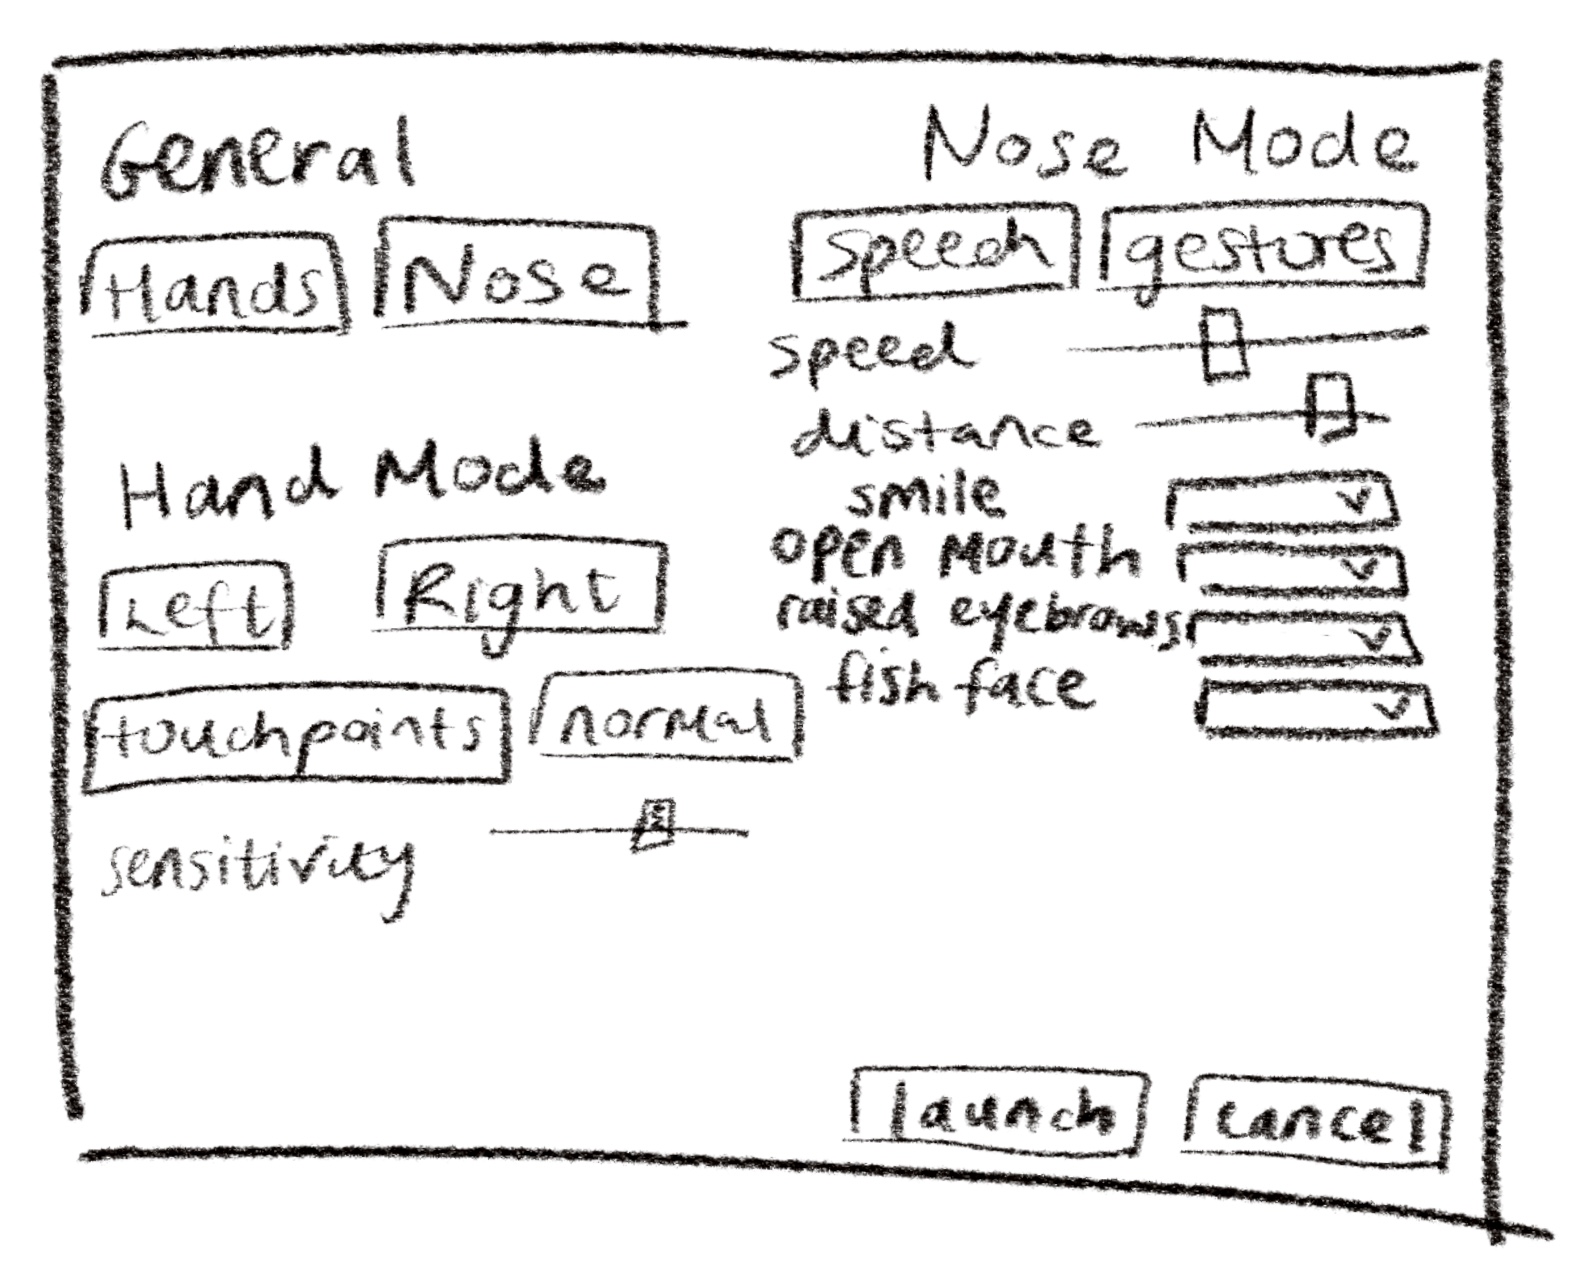 General
Hands Nose
Hand Mode
Left Right
touchpoints normal
sensitivity
Nose Mode
speech gestures
speed
distance
smile
open mouth
raised eyebrows
fish face
launch cancel